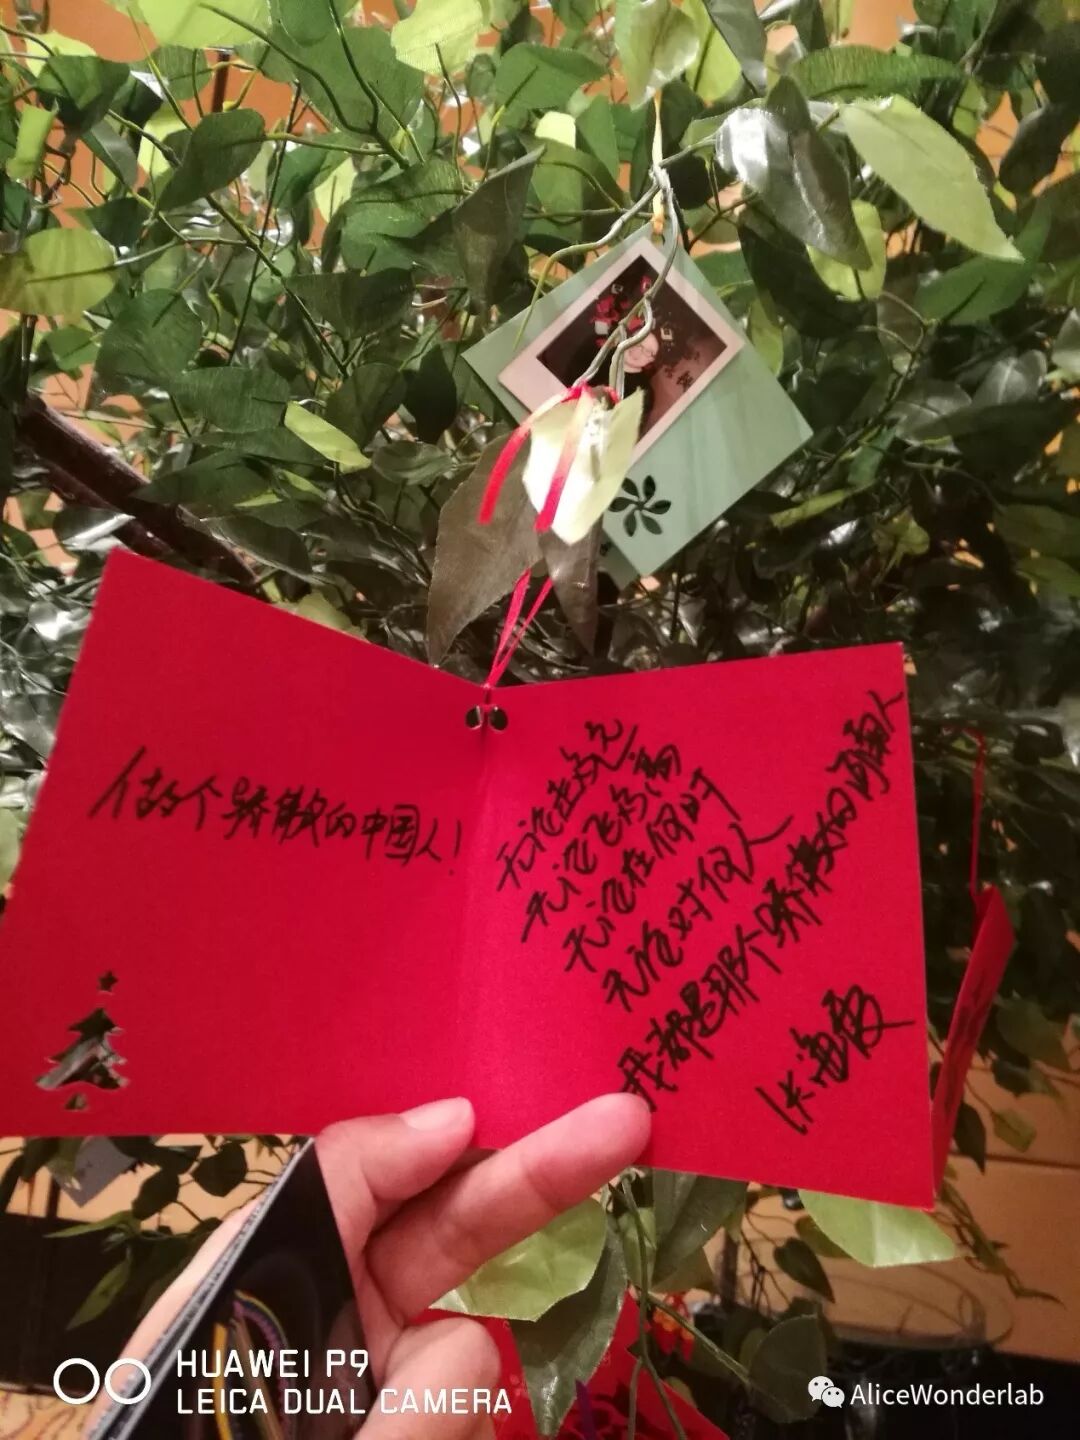 做个骄傲的中国人！
无论走多远
无论飞多高
无论在何时
无论对何人
我都是那个骄傲的河南人
张海霞
HUAWEI P9
LEICA DUAL CAMERA
AliceWonderlab